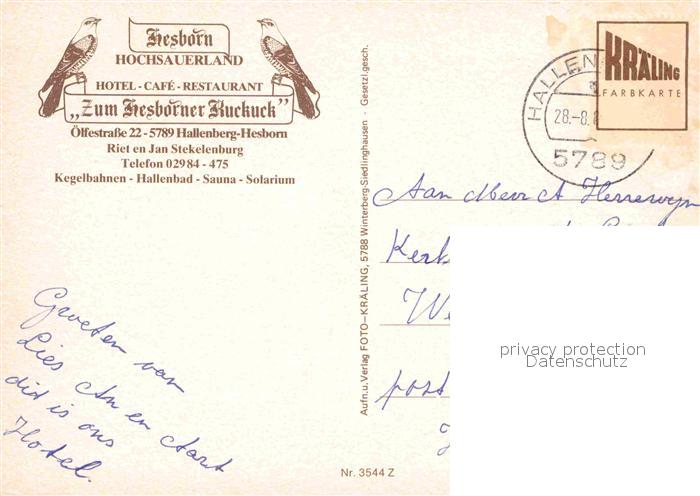 Hesborn
HOCHSAUERLAND
HOTEL - CAFÉ - RESTAURANT
„Zum Hesborner Kuckuck"
Ölfestraße 22 - 5789 Hallenberg-Hesborn
Riet en Jan Stekelenburg
Telefon 02984 - 475
Kegelbahnen - Hallenbad - Sauna - Solarium
Groeten van
Lies An en Aart
dit is ons
Hotel.
Aufn.u.Verlag FOTO-KRÄLING, 5788 Winterberg-Siedlinghausen - Gesetzl.gesch.
Nr. 3544 Z
HALLEN
28.-8.
5789
KRÄLING
FARBKARTE
Aan Mevr A Herrewyn
Kerk
We
post
privacy protection
Datenschutz